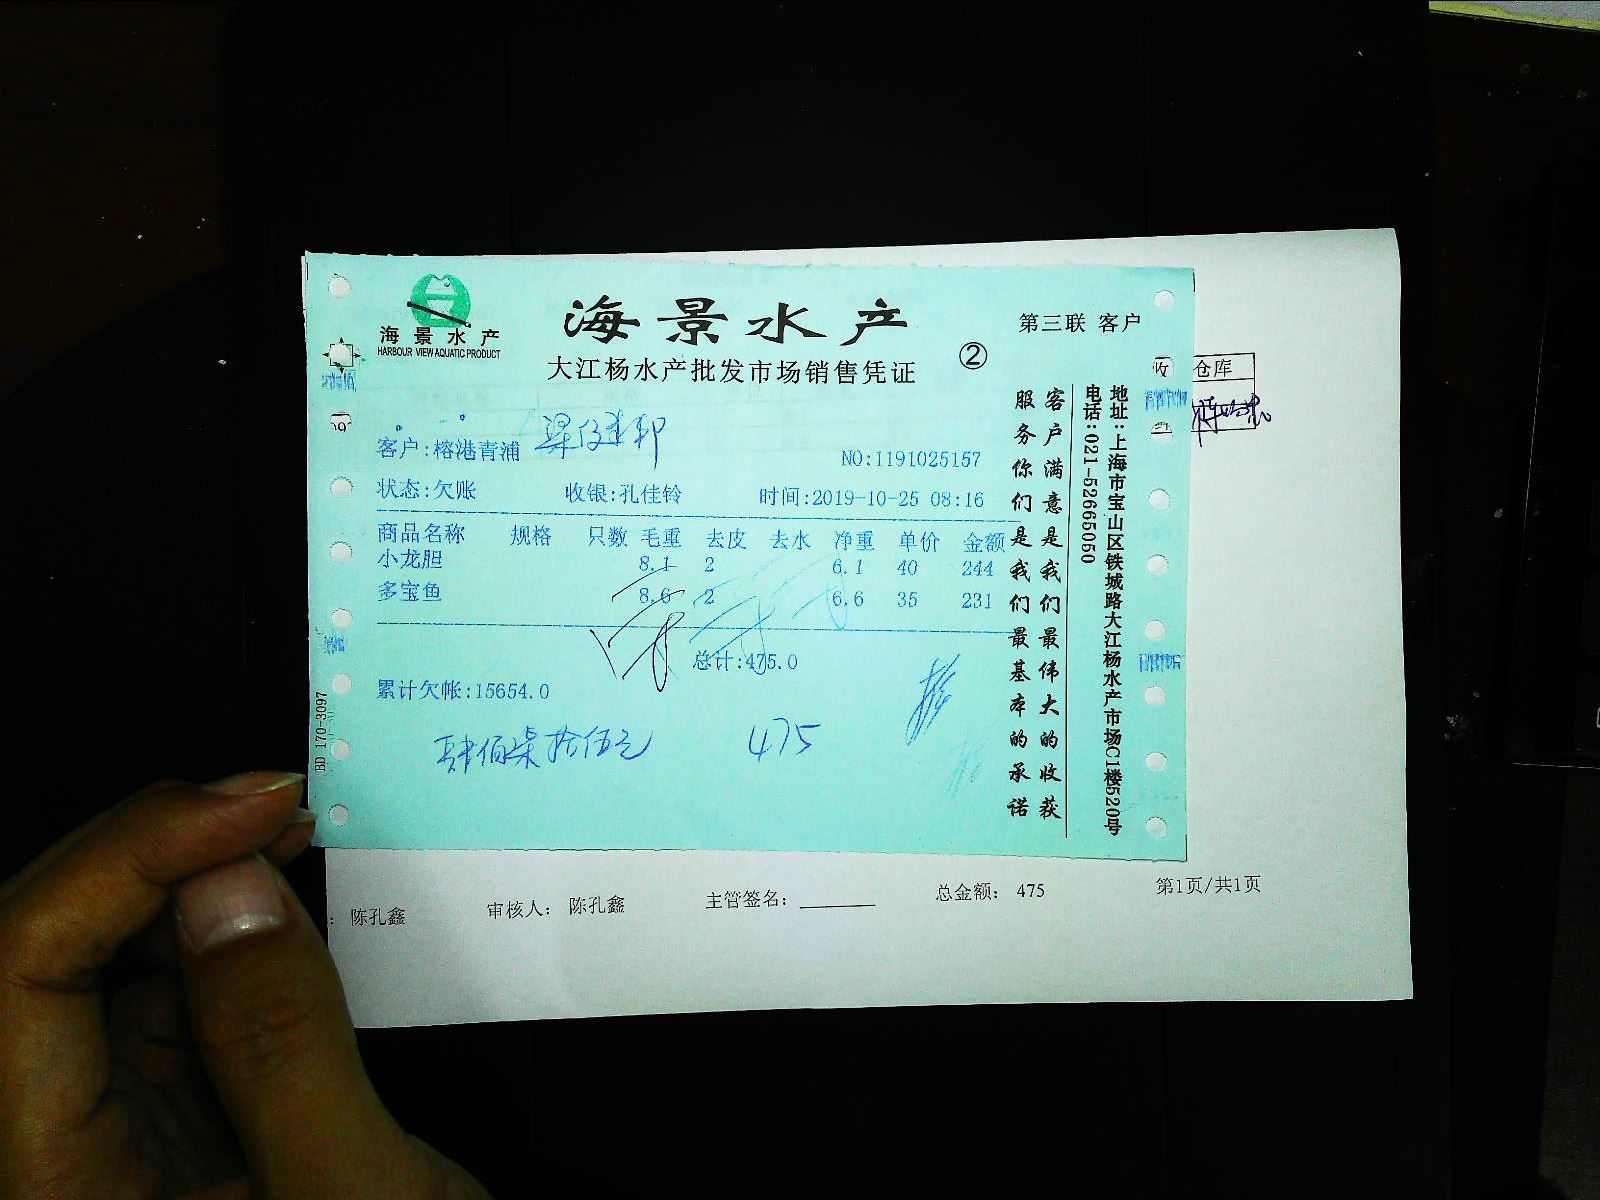 海景水产
HARBOUR VIEW AQUATIC PRODUCT
海景水产
大江杨水产批发市场销售凭证
②
第三联 客户
客户:榕港青浦
NO:1191025157
状态:欠账 收银:孔佳铃 时间:2019-10-25 08:16
商品名称 规格 只数 毛重 去皮 去水 净重 单价 金额
小龙胆 8.1 2 6.1 40 244
多宝鱼 8.6 2 6.6 35 231
总计:475.0
累计欠帐:15654.0
肆佰柒拾伍元 475
客户满意是我们最伟大的收获
服务你们是我们最基本的承诺
地址:上海市宝山区铁城路大江杨水产市场C1楼520号
电话:021-52665050
BD 170-3097
仓库
: 陈孔鑫 审核人: 陈孔鑫 主管签名: 总金额: 475 第1页/共1页